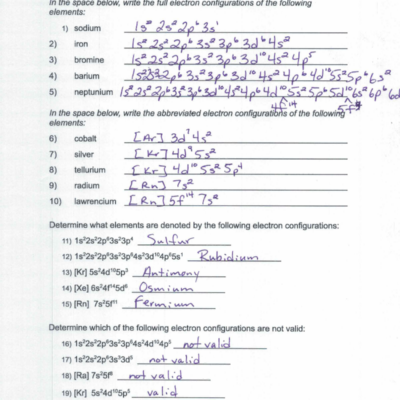 In the space below, write the full electron configurations of the following
elements:
1) sodium 1s² 2s² 2p⁶ 3s¹
2) iron 1s² 2s² 2p⁶ 3s² 3p⁶ 3d⁶ 4s²
3) bromine 1s² 2s² 2p⁶ 3s² 3p⁶ 3d¹⁰ 4s² 4p⁵
4) barium 1s² 2s² 2p⁶ 3s² 3p⁶ 3d¹⁰ 4s² 4p⁶ 4d¹⁰ 5s² 5p⁶ 6s²
5) neptunium 1s² 2s² 2p⁶ 3s² 3p⁶ 3d¹⁰ 4s² 4p⁶ 4d¹⁰ 5s² 5p⁶ 5d¹⁰ 6s² 6p⁶ 6d
4f¹⁴
In the space below, write the abbreviated electron configurations of the following
elements:
6) cobalt [Ar] 3d⁷ 4s²
7) silver [Kr] 4d⁹ 5s²
8) tellurium [Kr] 4d¹⁰ 5s² 5p⁴
9) radium [Rn] 7s²
10) lawrencium [Rn] 5f¹⁴ 7s²
Determine what elements are denoted by the following electron configurations:
11) 1s²2s²2p⁶3s²3p⁴ Sulfur
12) 1s²2s²2p⁶3s²3p⁶4s²3d¹⁰4p⁶5s¹ Rubidium
13) [Kr] 5s²4d¹⁰5p³ Antimony
14) [Xe] 6s²4f¹⁴5d⁶ Osmium
15) [Rn] 7s²5f¹¹ Fermium
Determine which of the following electron configurations are not valid:
16) 1s²2s²2p⁶3s²3p⁶4s²4d¹⁰4p⁵ not valid
17) 1s²2s²2p⁶3s³3d⁵ not valid
18) [Ra] 7s²5f⁸ not valid
19) [Kr] 5s²4d¹⁰5p⁵ valid